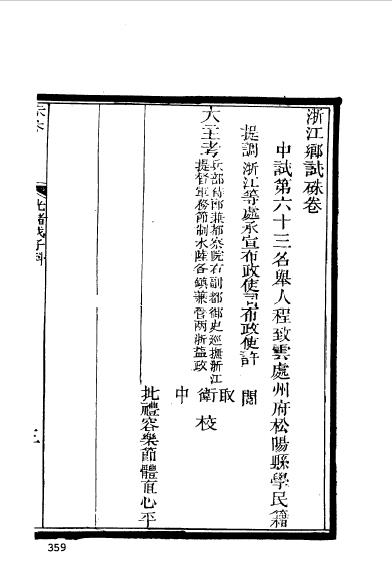 浙江鄉試硃卷
中試第六十三名舉人程致雲處州府松陽縣學民籍
提調浙江等處承宣布政使司布政使許 閱
大主考兵部侍郎兼都察院右副都御史巡撫浙江
提督軍務節制水陸各鎮兼管兩浙鹽政
取
衛校
中
批禮容樂節體直心平
光緒戊子科
三
359